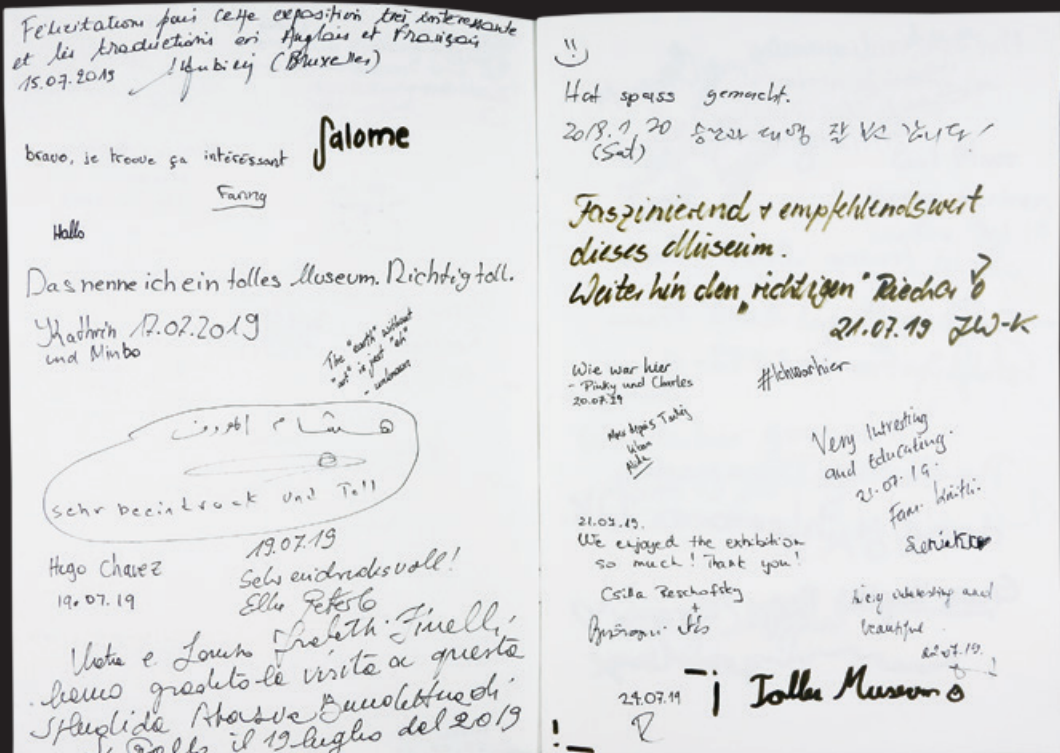 Félicitations pour cette exposition très intéressante
et les traductions en Anglais et Français
15.07.2019 (Bruxelles)
Salome
bravo, je trouve ça intéressant
Fanny
Hallo
Das nenne ich ein tolles Museum. Richtig toll.
Kathrin 17.07.2019
und Minbo
The "earth" without
"art" is just "eh"
- unknown
هشام
sehr beeindruck und Toll
19.07.19
Hugo Chavez
19.07.19
Sehr eindrucksvoll!
Elke
e
hanno gradito la visita a questa
il 19 luglio del 2019
Hat spass gemacht.
2018.1.20
(Sat)
잘 보고 갑니다!
Faszinierend + empfehlendswert
dieses Museum.
Weiterhin den „richtigen" Riecher
21.07.19 JW-K
Wie war hier
- Pinky und Charles
20.07.19
#Ichwarhier
Very Intresting
and Educating.
21.07.19.
Fam.
21.07.19.
We enjoyed the exhibition
so much! Thank you!
Csilla Beschofsky
+
Very interesting and
beautiful
24.07.19
R
Tolles Museum